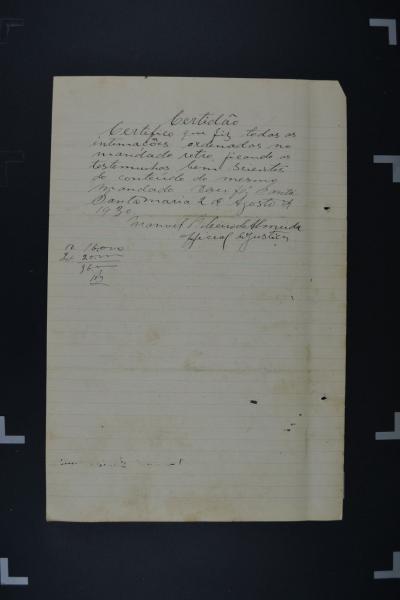 Certidão
Certifico que fiz todas as
intimações ordenadas no
mandado retro, ficando as
testemunhas bem scientes
do conteudo do mesmo
mandado. Dou fé
Santa maria 2 de Agosto de
1930
Manoel Ribeiro de Almeida
Official de Justiça